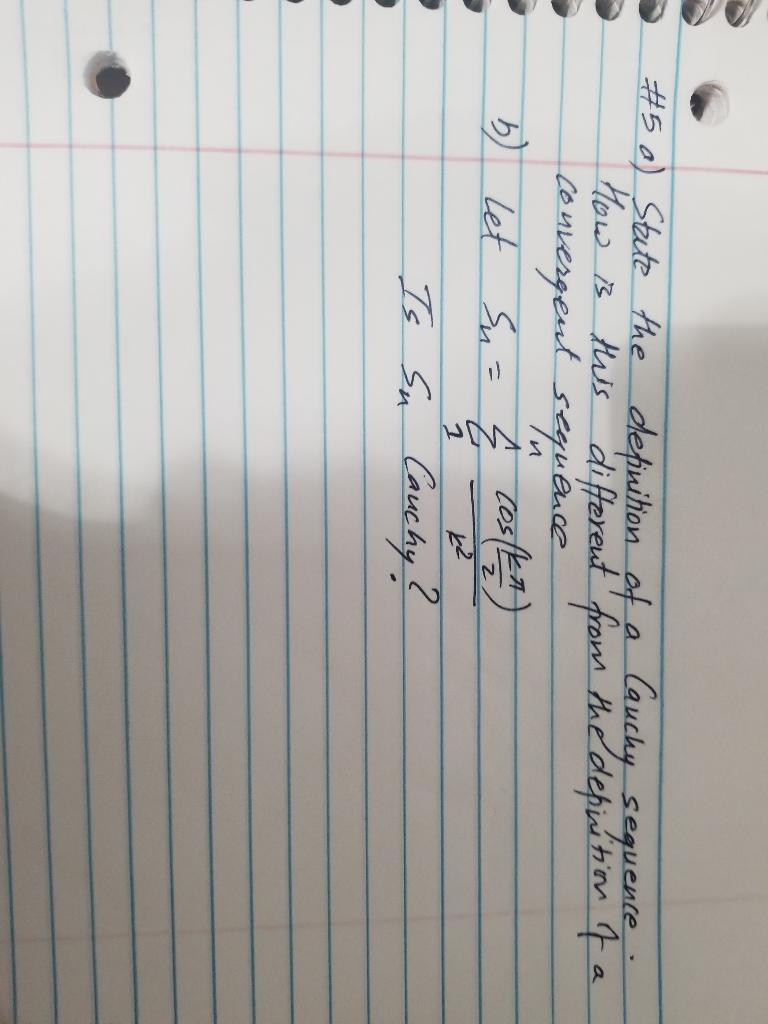 #5 a) State the definition of a Cauchy sequence.
How is this different from the definition of a
convergent sequence
b) Let Sn = n Σ 1 cos(kπ/2) / k²
Is Sn Cauchy?